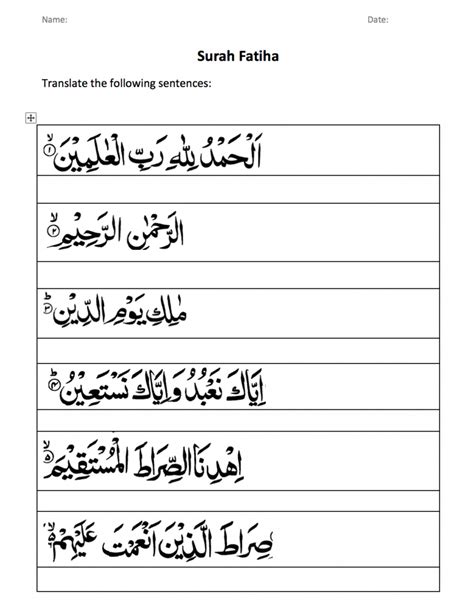 Name:
Date:
Surah Fatiha
Translate the following sentences:
اَلْحَمْدُ لِلّٰهِ رَبِّ الْعٰلَمِيْنَ ۙ﴿۱﴾
الرَّحْمٰنِ الرَّحِيْمِ ۙ﴿۲﴾
مٰلِكِ يَوْمِ الدِّيْنِ ؕ﴿۳﴾
اِيَّاكَ نَعْبُدُ وَاِيَّاكَ نَسْتَعِيْنُ ؕ﴿۴﴾
اِهْدِنَا الصِّرَاطَ الْمُسْتَقِيْمَ ۙ﴿۵﴾
صِرَاطَ الَّذِيْنَ اَنْعَمْتَ عَلَيْهِمْ ۙ